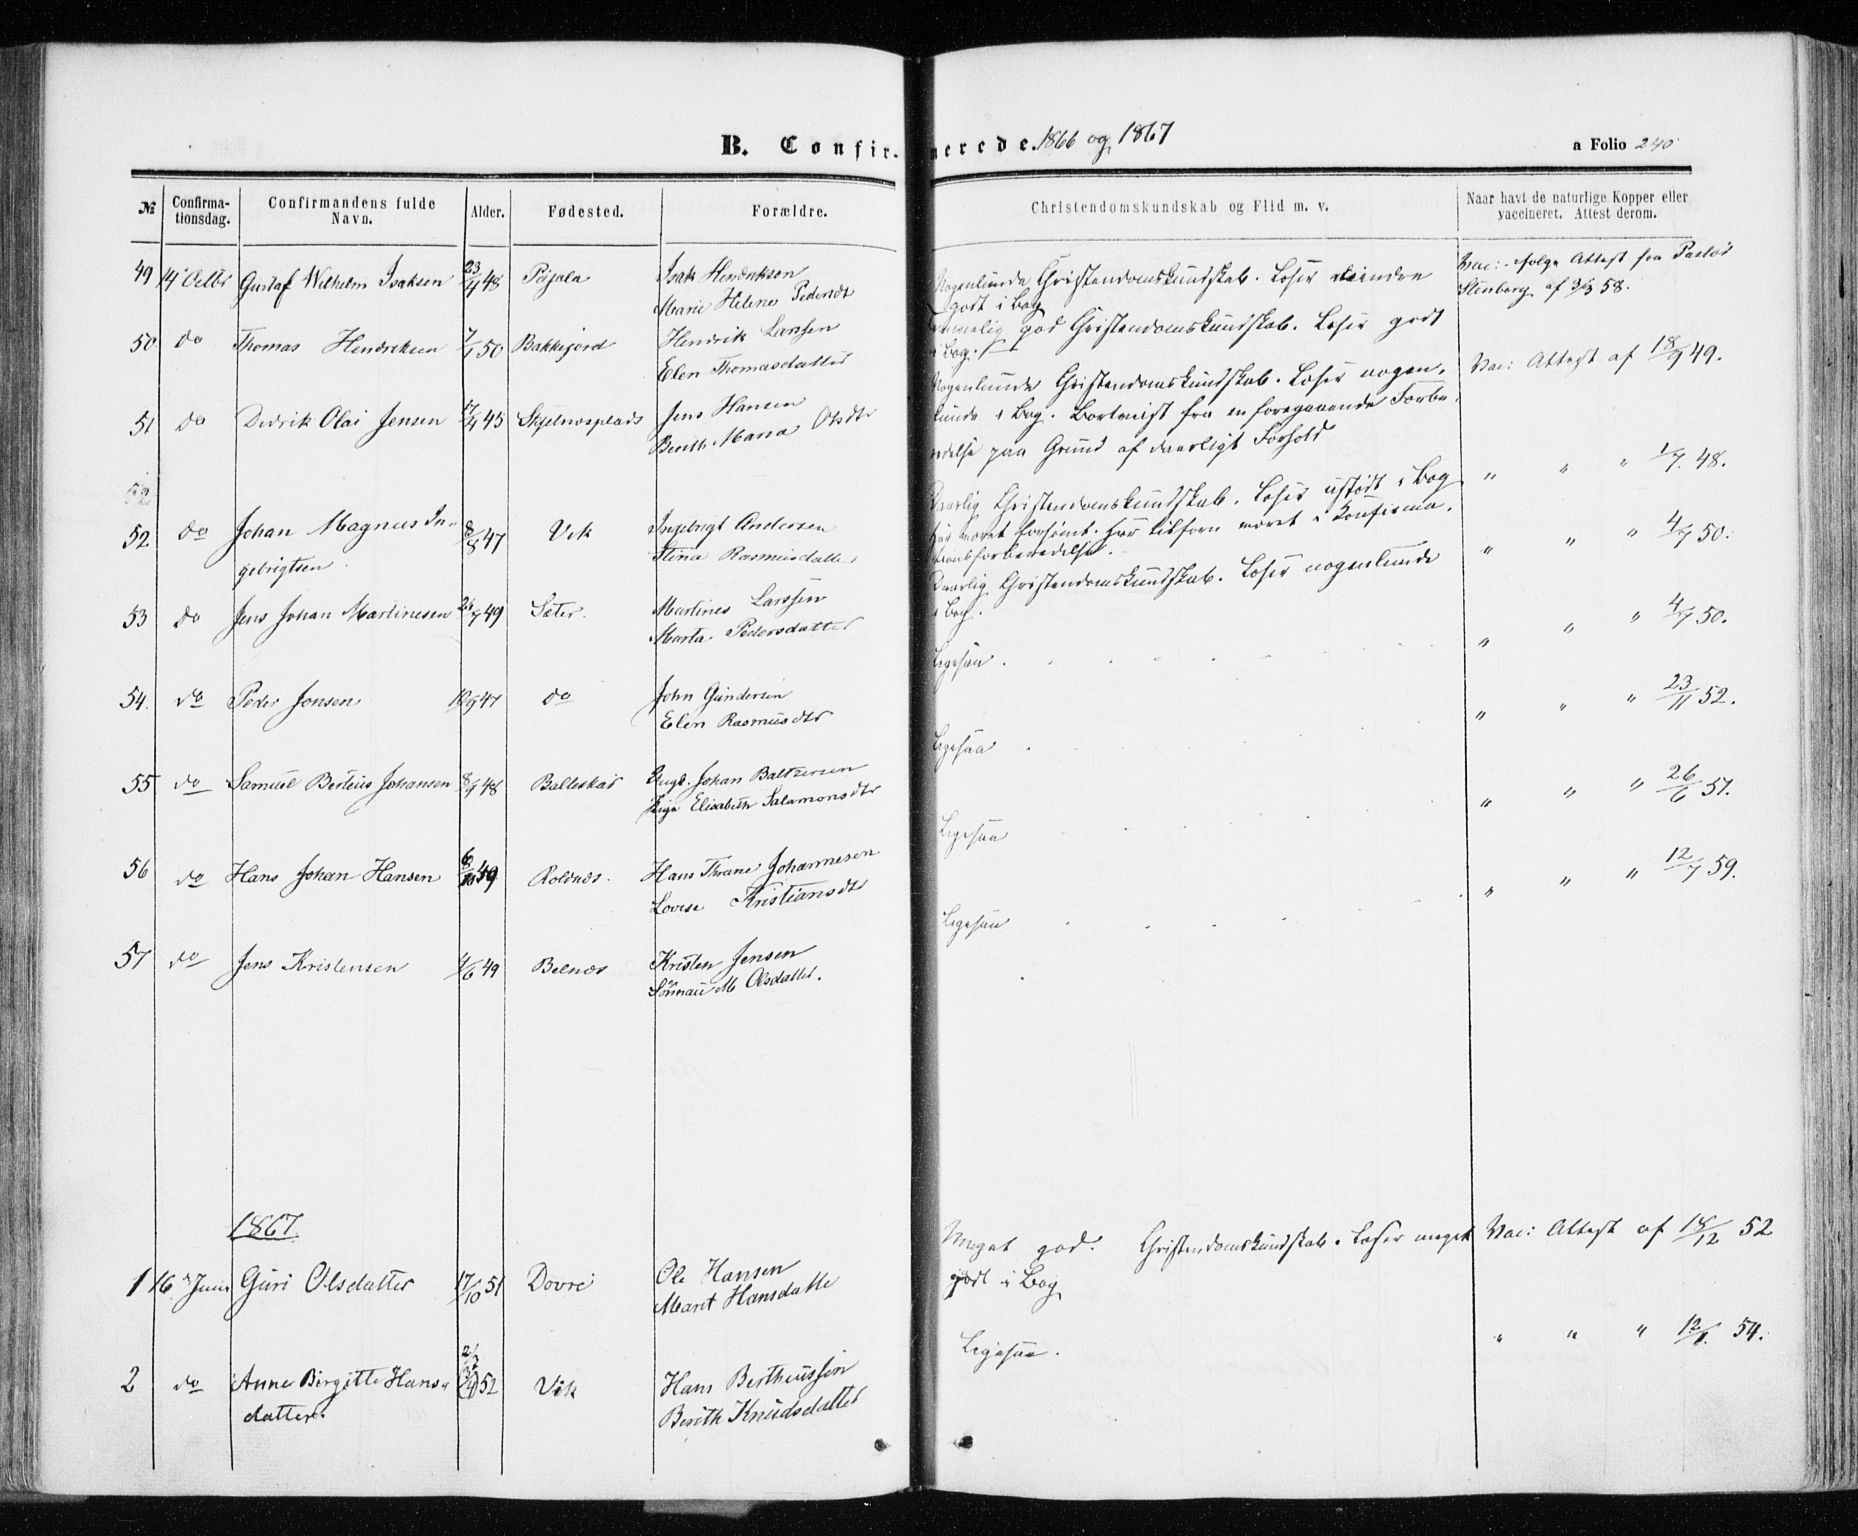 B. Confirmerede. 1866 og 1867
a Folio 240
№
Confirmationsdag.
Confirmandens fulde Navn.
Alder.
Fødested.
Forældre.
Christendomskundskab og Flid m. v.
Naar havt de naturlige Kopper eller vaccineret. Attest derom.
49 14 Octbr Gustaf Wilhelm Isaksen 23/4 48 Pajala Isak Hendrikson
Marie Helene Pedersdt
Nogenlunde Christendomskundskab. Læser mindre
godt i Bog
Vac: ifølge Attest fra Pastor
Stenborg af 3/3 58.
50 do Thomas Hendriksen 7/1 50 Bakkejord Hendrik Larssen
Elen Thomasdatter
Temmelig god Christendomskundskab. Læser godt
i Bog.
Vac: Attest af 18/9 49.
51 do Didrik Olai Jensen 17/4 45 Skjelnesplads Jens Hansen
Berith Maria Olsdtr
Nogenlunde Christendomskundskab. Læser nogen-
lunde i Bog. Bortvist fra en foregaaende Forbe-
redelse paa Grund af daarligt Forhold
" " " 1/7 48.
52
52 do Johan Magnus In-
gebrigtsen 8/8 47 Vik Ingebrigt Andersen
Stina Rasmusdatter
Daarlig Christendomskundskab. Læser ustødt i Bog
Har været forsømt. Har tilforn været i Konfirma-
tionsforberedelse.
" " " 4/7 50.
53 do Jens Johan Martinesen 26/7 49 Sæter. Martines Larssen
Marta Pedersdatter
Daarlig Christendomskundskab. Læser nogenlunde
i Bog.
" " " 4/7 50.
54. do Peder Jonsen 10/9 47 do John Gundersen
Elen Rasmusdtr
Ligesaa
" " " 23/11 52.
55 do Samuel Berteus Johansen 8/9 48 Balleskar Ungk. Johan Baltzersen
Pige Elisabeth Salamonsdtr
Ligesaa
" " " 26/6 51.
56 do Hans Johan Hansen 6/10 49 Roldnæs. Hans Thrane Johannesen
Lovise Kristiansdt
Ligesaa
" " " 12/7 59.
57 do Jens Kristensen 4/6 49 Belnæs Kristen Jensen
M Olsdatter.
Ligesaa
1867.
1 16de Juni Guri Olsdatter 17/10 51 Dovre Ole Hansen
Marit Hansdatte
Meget god. Christendomskundskab. Læser meget
godt i Bog
Vac: Attest af 18/12 52
2 do Anne Birgitte Hans-
datter. 52 Vik Hans Bertheussen
Berith Knudsdatter
Ligesaa.
" " " 54.